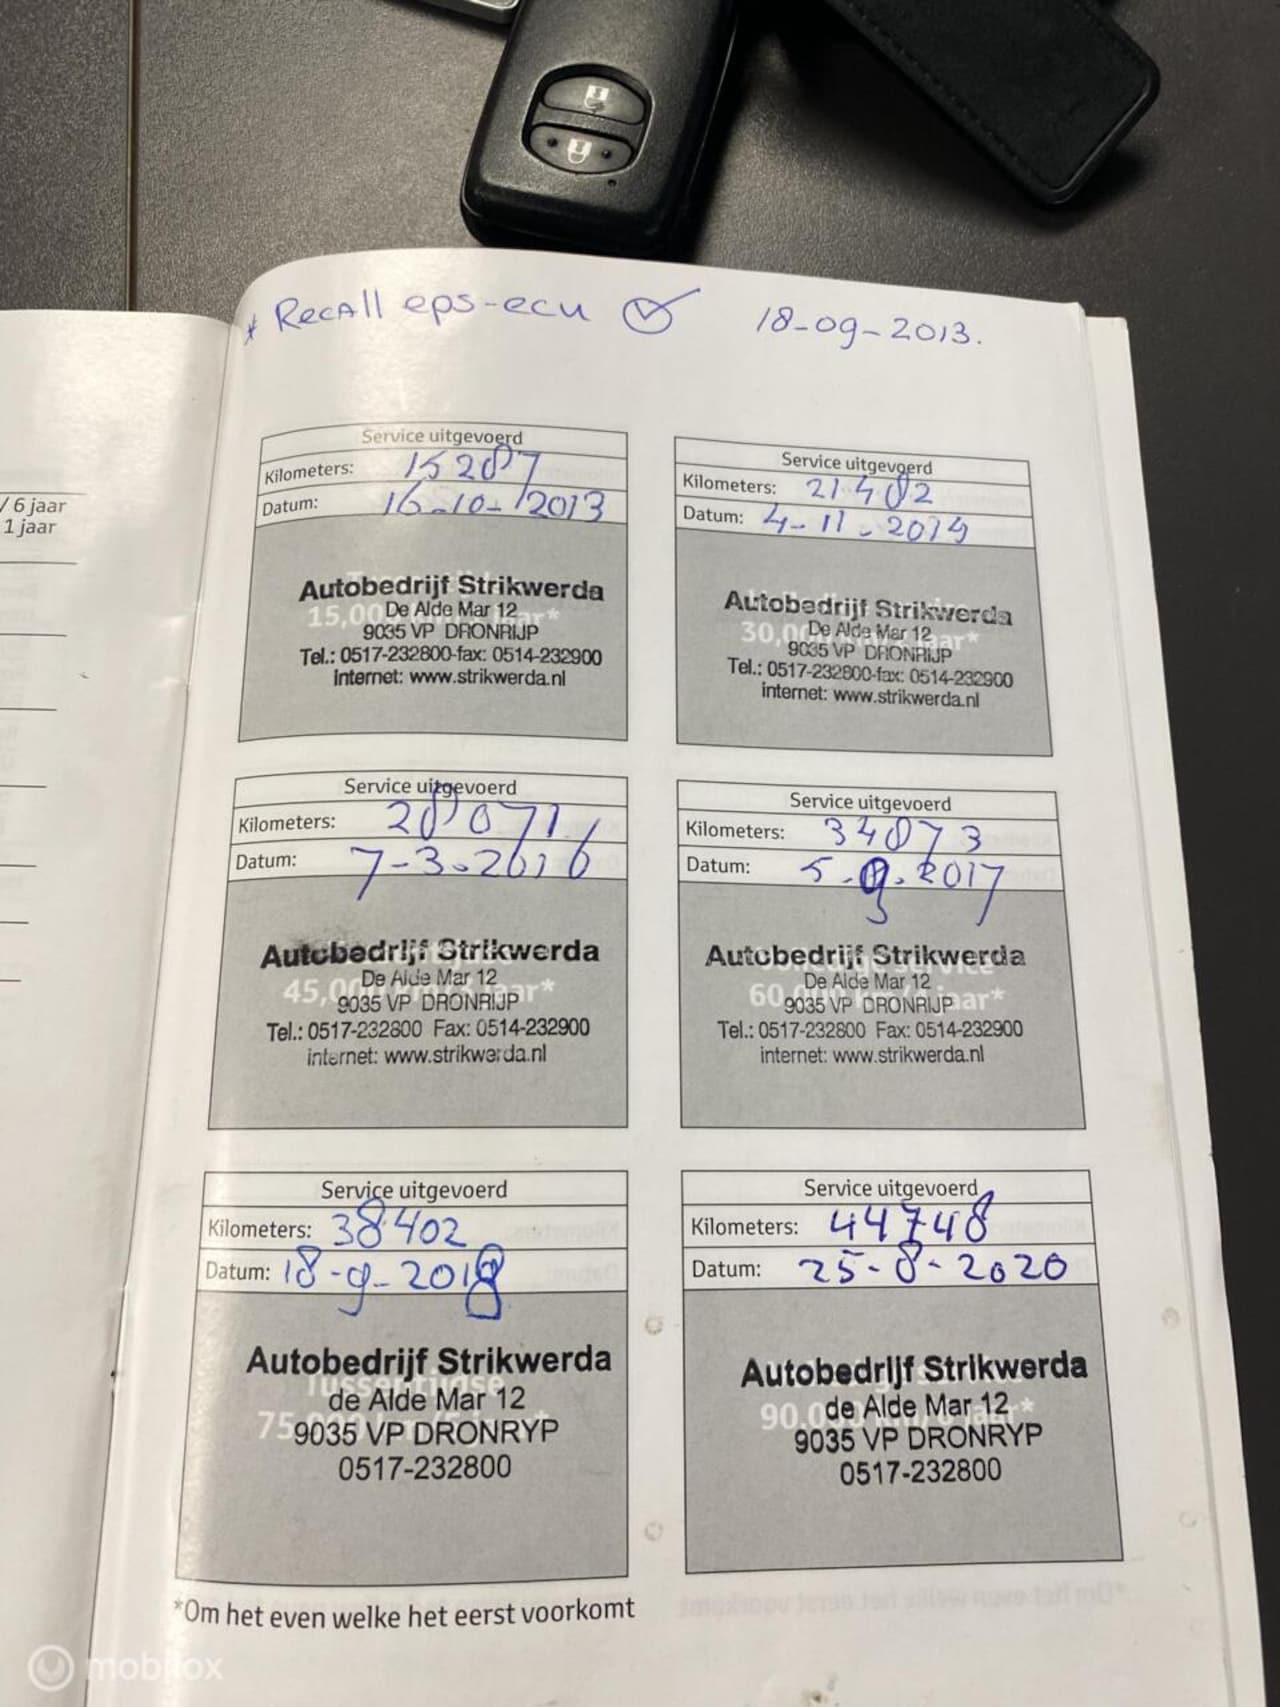 / 6 jaar
1 jaar
* Recall eps-ecu 18-09-2013.
Service uitgevoerd
Kilometers: 15287
Datum: 16-10-2013
Autobedrijf Strikwerda
De Alde Mar 12
15,000 jaar*
9035 VP DRONRIJP
Tel.: 0517-232800-fax: 0514-232900
internet: www.strikwerda.nl
Service uitgevoerd
Kilometers: 21482
Datum: 4-11-2014
Autobedrijf Strikwerda
De Alde Mar 12
30,000 jaar*
9035 VP DRONRIJP
Tel.: 0517-232800-fax: 0514-232900
internet: www.strikwerda.nl
Service uitgevoerd
Kilometers: 28071
Datum: 7-3-2016
Autobedrijf Strikwerda
De Alde Mar 12
45,000 km/3 jaar*
9035 VP DRONRIJP
Tel.: 0517-232800 Fax: 0514-232900
internet: www.strikwerda.nl
Service uitgevoerd
Kilometers: 34873
Datum: 5-9-2017
Autobedrijf Strikwerda
Volledige service
De Alde Mar 12
60,000 km/4 jaar*
9035 VP DRONRIJP
Tel.: 0517-232800 Fax: 0514-232900
internet: www.strikwerda.nl
Service uitgevoerd
Kilometers: 38402
Datum: 18-9-2018
Autobedrijf Strikwerda
Tussentijdse
de Alde Mar 12
75,000 km/5 jaar*
9035 VP DRONRYP
0517-232800
Service uitgevoerd
Kilometers: 44748
Datum: 25-8-2020
Autobedrijf Strikwerda
de Alde Mar 12
90.000 km/6 jaar*
9035 VP DRONRYP
0517-232800
*Om het even welke het eerst voorkomt
mobilox